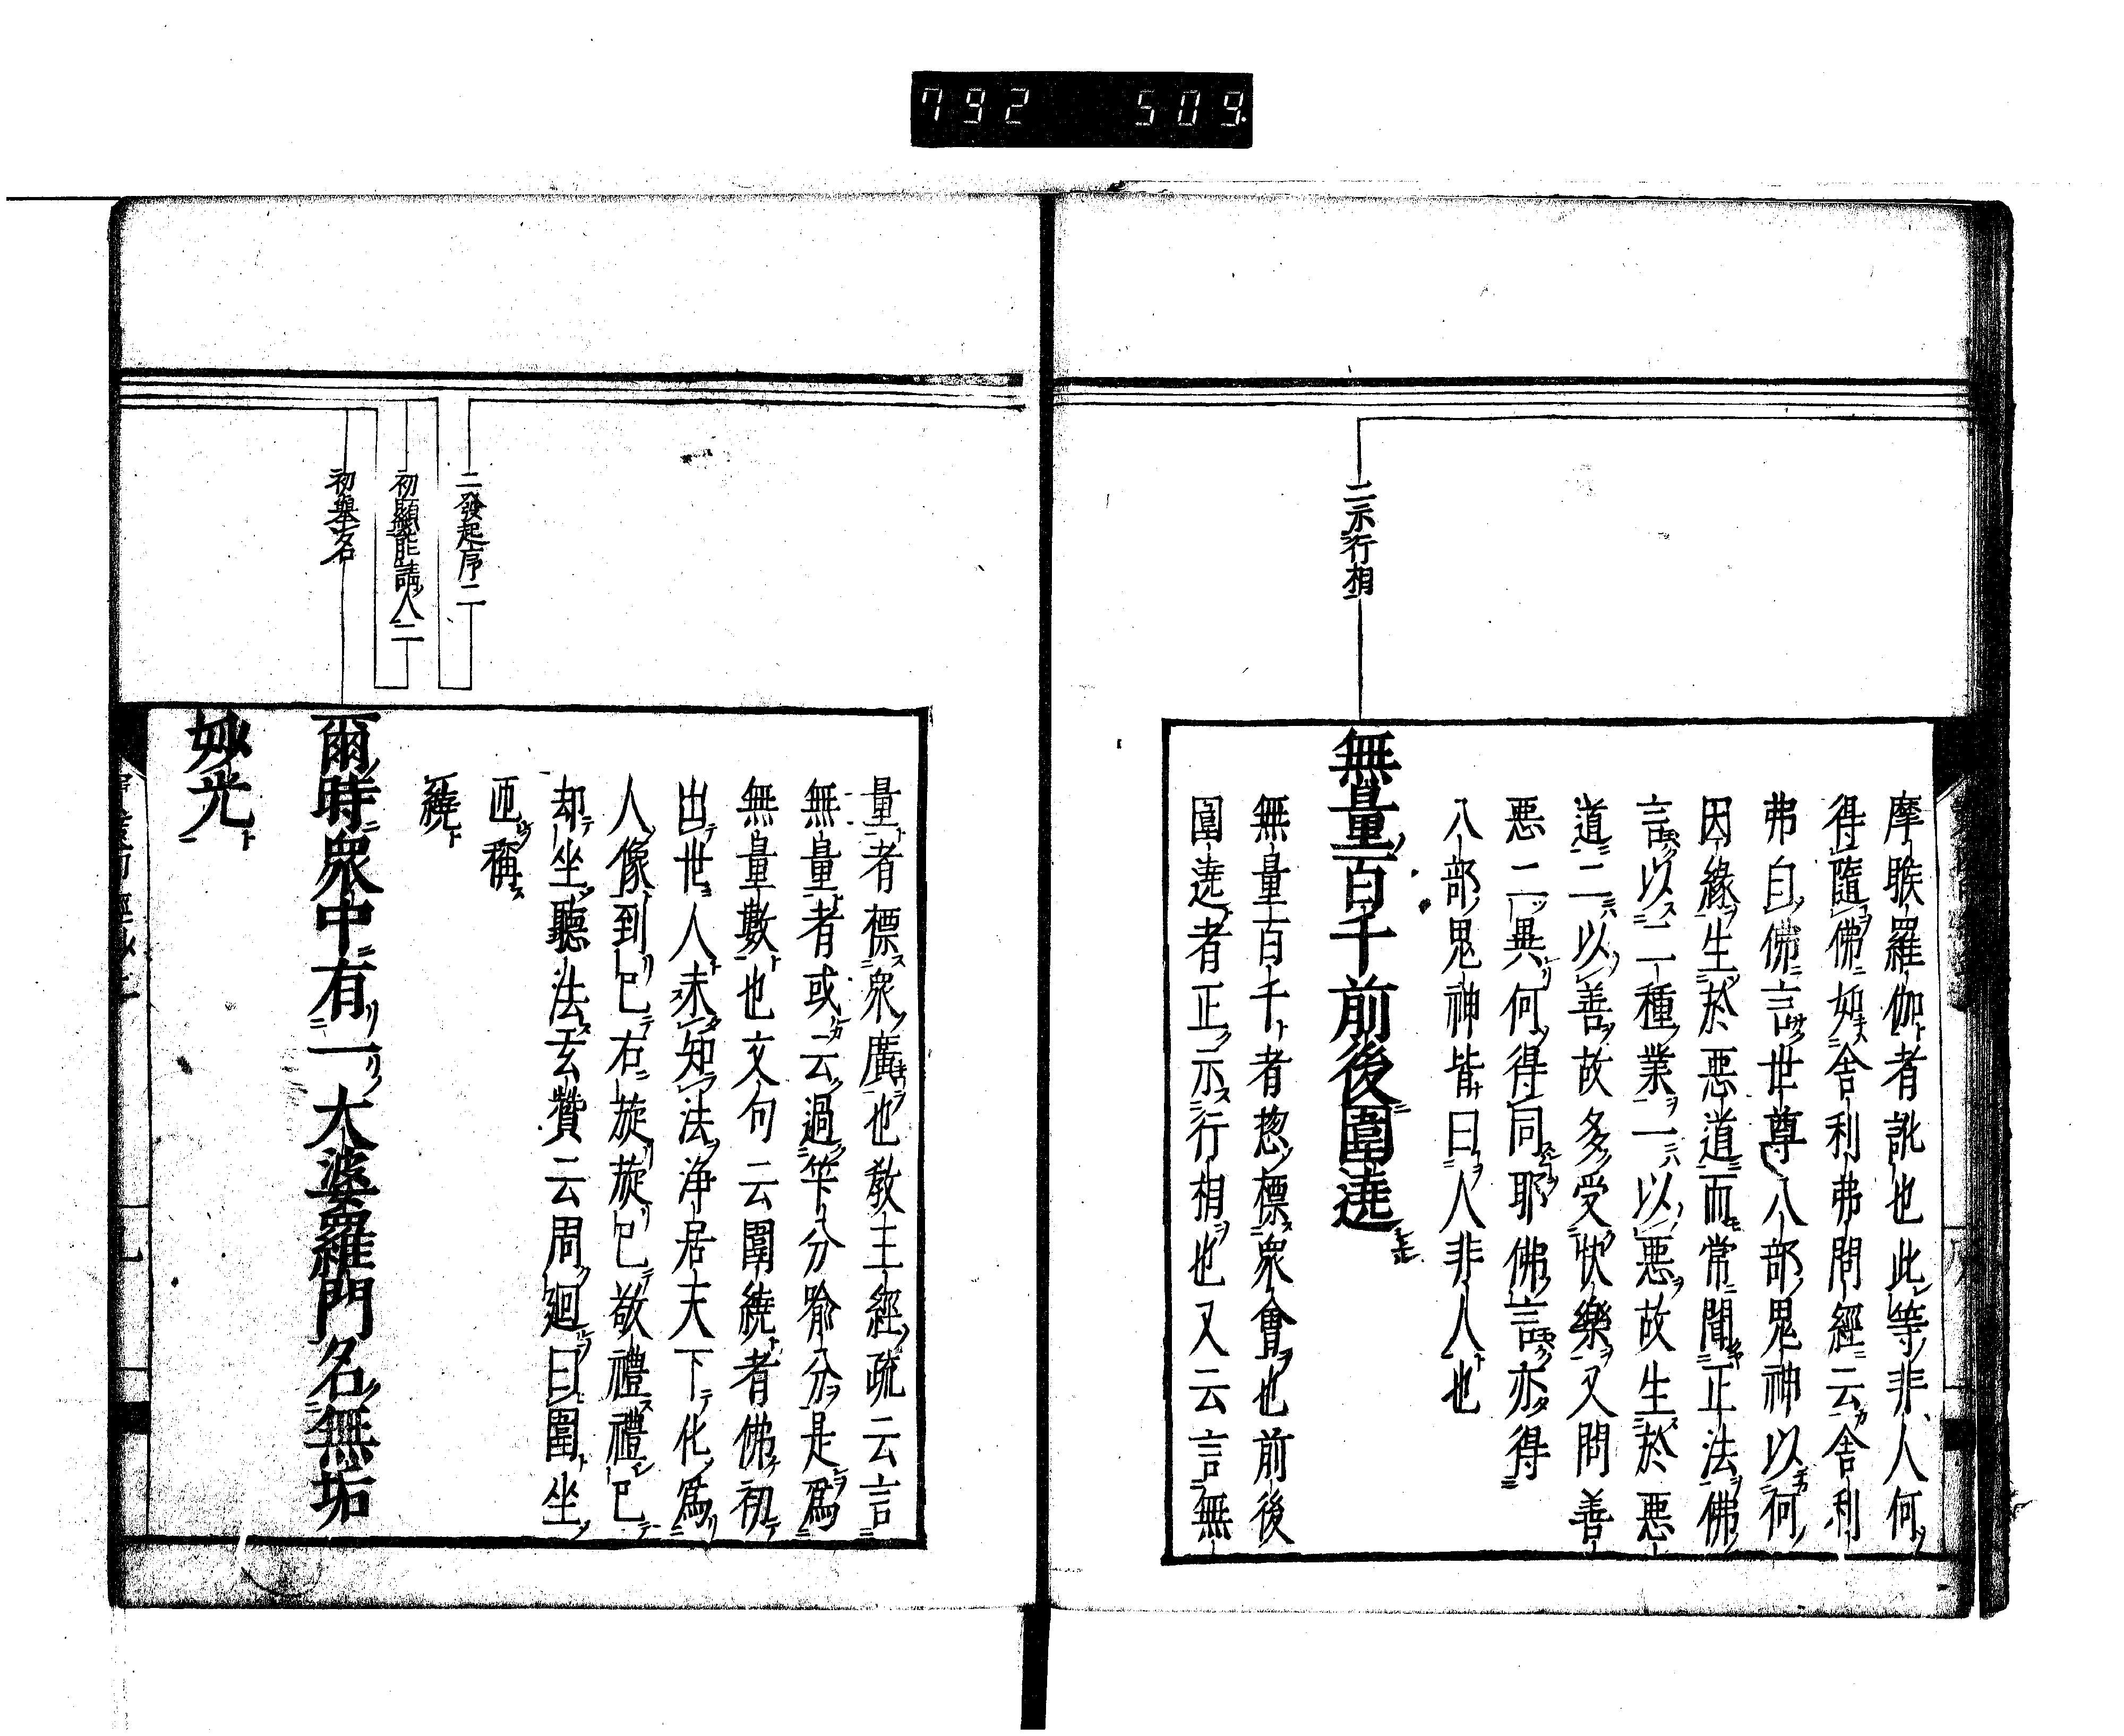 792 509
二示行相
摩睺羅伽者訛也此等非人何
得隨佛如舍利弗問經云舍利
弗白佛言世尊八部鬼神以何
因緣生於惡道而常聞正法佛
言以二種業一以惡故生於惡
道二以善故多受快樂又問善
惡二異何得同耶佛言亦得
八部鬼神皆曰人非人也
無量百千前後圍遶
無量百千者惣標衆會也前後
圍遶者正示行相也又云言無
二發起序二
初顯能請人二
初擧名
量者標衆廣也教主經疏云言
無量者或云過筭分喩分是爲
無量數也文句云圍繞者佛初
出世人未知法淨居天下化爲
人像到已右旋旋已敬禮禮已
却坐聽法玄贊云周𢌞曰圍坐
匝稱
繞
爾時衆中有一大婆羅門名無垢
妙光